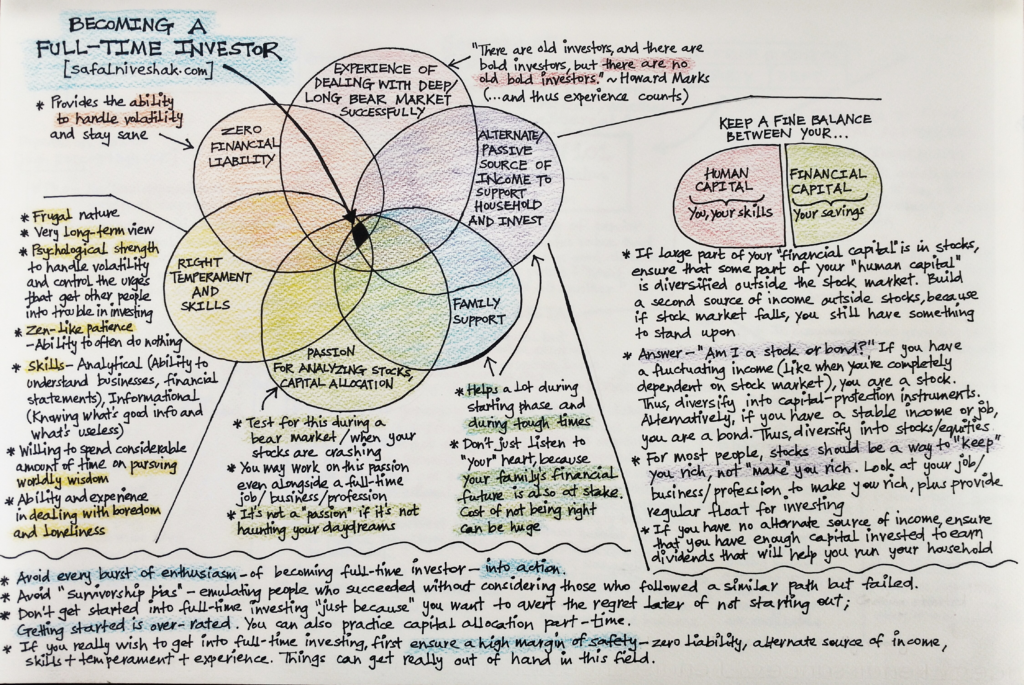 BECOMING A
FULL-TIME INVESTOR
[safalniveshak.com]
* Provides the ability
to handle volatility
and stay sane
ZERO
FINANCIAL
LIABILITY
EXPERIENCE OF
DEALING WITH DEEP/
LONG BEAR MARKET
SUCCESSFULLY
"There are old investors, and there are
bold investors, but there are no
old bold investors." ~ Howard Marks
(...and thus experience counts)
ALTERNATE/
PASSIVE
SOURCE OF
INCOME TO
SUPPORT
HOUSEHOLD
AND INVEST
RIGHT
TEMPERAMENT
AND
SKILLS
FAMILY
SUPPORT
PASSION
FOR ANALYZING STOCKS,
CAPITAL ALLOCATION
* Frugal nature
* Very long-term view
* Psychological strength
to handle volatility
and control the urges
that get other people
into trouble in investing
* Zen-like patience
- Ability to often do nothing
* Skills - Analytical (Ability to
understand businesses, financial
statements), Informational
(Knowing what's good info and
what's useless)
* Willing to spend considerable
amount of time on pursuing
worldly wisdom
* Ability and experience
in dealing with boredom
and loneliness
* Test for this during a
bear market/when your
stocks are crashing
* You may work on this passion
even alongside a full-time
job/business/profession
* It's not a "passion" if it's not
haunting your daydreams
* Helps a lot during
starting phase and
during tough times
* Don't just listen to
"your" heart, because
your family's financial
future is also at stake.
Cost of not being right
can be huge
KEEP A FINE BALANCE
BETWEEN YOUR...
HUMAN
CAPITAL
You, your skills
FINANCIAL
CAPITAL
Your savings
* If large part of your "financial capital" is in stocks,
ensure that some part of your "human capital"
is diversified outside the stock market. Build
a second source of income outside stocks, because
if stock market falls, you still have something
to stand upon
* Answer - "Am I a stock or bond?" If you have
a fluctuating income (like when you're completely
dependent on stock market), you are a stock.
Thus, diversify into capital-protection instruments.
Alternatively, if you have a stable income or job,
you are a bond. Thus, diversify into stocks/equities.
* For most people, stocks should be a way to "keep"
you rich, not "make" you rich. Look at your job/
business/profession to make you rich, plus provide
regular float for investing
* If you have no alternate source of income, ensure
that you have enough capital invested to earn
dividends that will help you run your household
* Avoid every burst of enthusiasm - of becoming full-time investor - into action.
* Avoid "Survivorship bias" - emulating people who succeeded without considering those who followed a similar path but failed.
* Don't get started into full-time investing "just because" you want to avert the regret later of not starting out;
Getting started is over-rated. You can also practice capital allocation part-time.
* If you really wish to get into full-time investing, first ensure a high margin of safety - zero liability, alternate source of income,
skills + temperament + experience. Things can get really out of hand in this field.